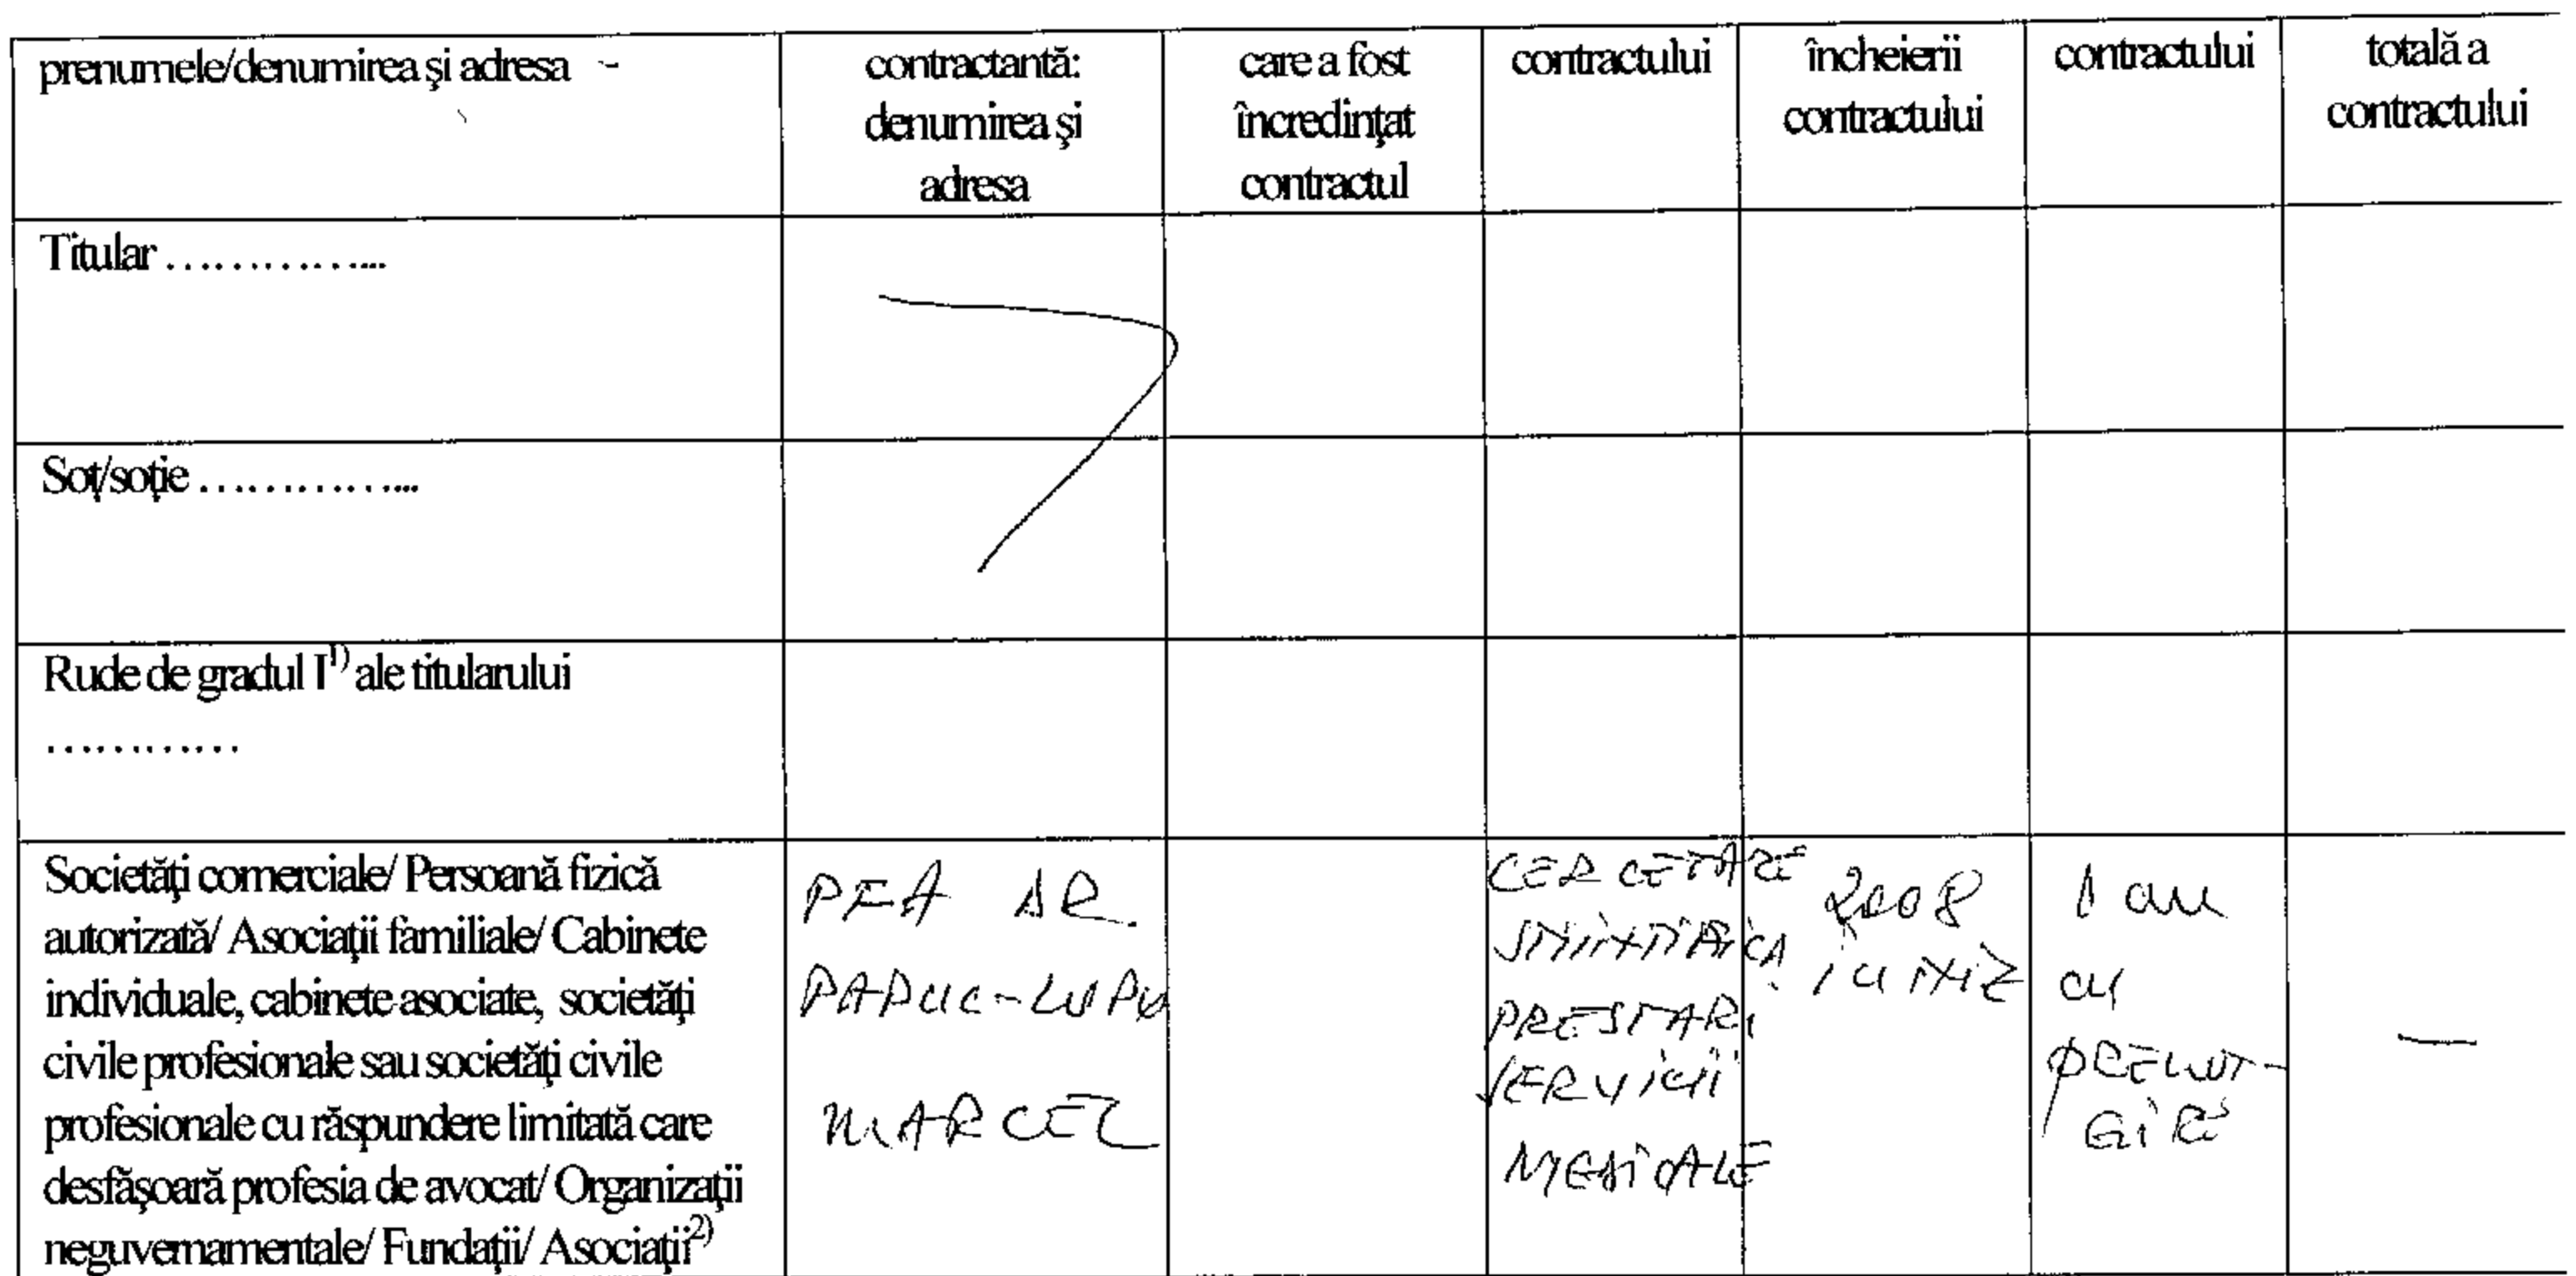 prenumele/denumirea şi adresa
contractantă:
denumirea şi
adresa
care a fost
încredinţat
contractul
contractului
încheierii
contractului
contractului
totală a
contractului
Titular ................
Soţ/soţie ................
Rude de gradul I1) ale titularului
............
Societăţi comerciale/ Persoană fizică
autorizată/ Asociaţii familiale/ Cabinete
individuale, cabinete asociate, societăţi
civile profesionale sau societăţi civile
profesionale cu răspundere limitată care
desfăşoară profesia de avocat/ Organizaţii
neguvernamentale/ Fundaţii/ Asociaţii2)
PFA DR.
MARCEL
CERCETARE
PRESTARI
SERVICII
MEDICALE
2008
1 an
cu
PRELUN-
GIRI
—